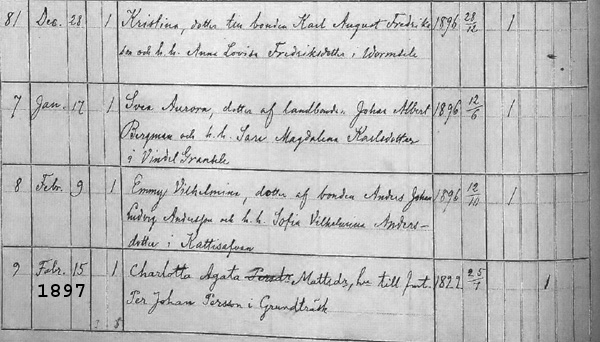 81 Dec. 28 1 Kristina, dotter till bonden Karl August Fredriks- 1896 28/12 1
son och h. h. Anna Lovisa Fredriksdotter i Wormsele
7 Jan. 17 1 Svea Aurora, dotter af landbonden Johan Albert 1896 12/6 1
Bergman och h. h. Sara Magdalena Karlsdotter
i Vindel Gransele
8 Febr. 9 1 Emmy Vilhelmina, dotter af bonden Anders Johan 1896 12/10 1
Ludvig Andersson och h. h. Sofia Vilhelmina Anders-
dotter i Kattisafvan
9 Febr. 15 1 Charlotta Agata Persdr Mattsdr, h. till fint. 1822 25/1 1
1897 Per Johan Persson i Grundträsk
8